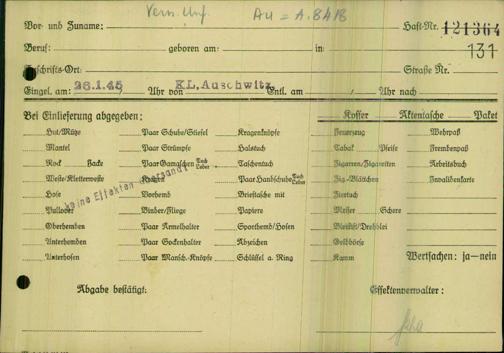 Vern. Unf. Au = A. 8418
Vor- und Zuname: Haft-Nr. 121364
131
Beruf: geboren am: in:
Anschrifts-Ort: Straße Nr.
Eingel. am: 28.1.45 Uhr von KL, Auschwitz Entl. am / Uhr nach
Bei Einlieferung abgegeben: Koffer Aktentasche Paket
Hut/Mütze Paar Schuhe/Stiefel Kragenknöpfe Feuerzeug Wehrpaß
Mantel Paar Strümpfe Halstuch Tabak Pfeife Fremdenpaß
Rock Jacke Paar Gamaschen Tuch Leder Taschentuch Zigarren/Zigaretten Arbeitsbuch
Weste/Kletterweste Kragen Paar Handschuhe Tuch Leder Zig-Blättchen Invalidenkarte
Hose Vorhemd Brieftasche mit Ziertuch
Pullover Binder/Fliege Papiere Messer Schere
Oberhemden Paar Ärmelhalter Sporthemd/Hosen Bleistift/Drehblei
Unterhemden Paar Sockenhalter Abzeichen Geldbörse
Unterhosen Paar Mansch.-Knöpfe Schlüssel a. Ring Kamm Wertsachen: ja—nein
keine Effekten
Abgabe bestätigt: Effektenverwalter: